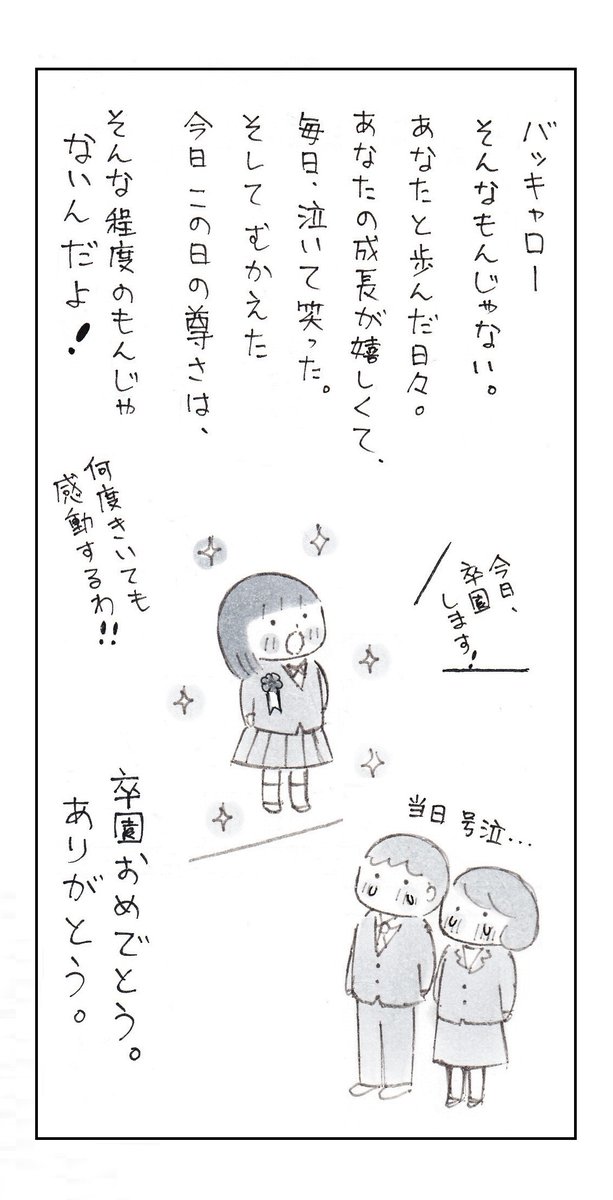 バッキャロー
そんなもんじゃない。
あなたと歩んだ日々。
あなたの成長が嬉しくて、
毎日、泣いて笑った。
そして むかえた
今日 この日の尊さは、
そんな程度のもんじゃ
ないんだよ!
今日、
卒園
します!
何度きいても
感動するわ!!
当日 号泣...
卒園おめでとう。
ありがとう。